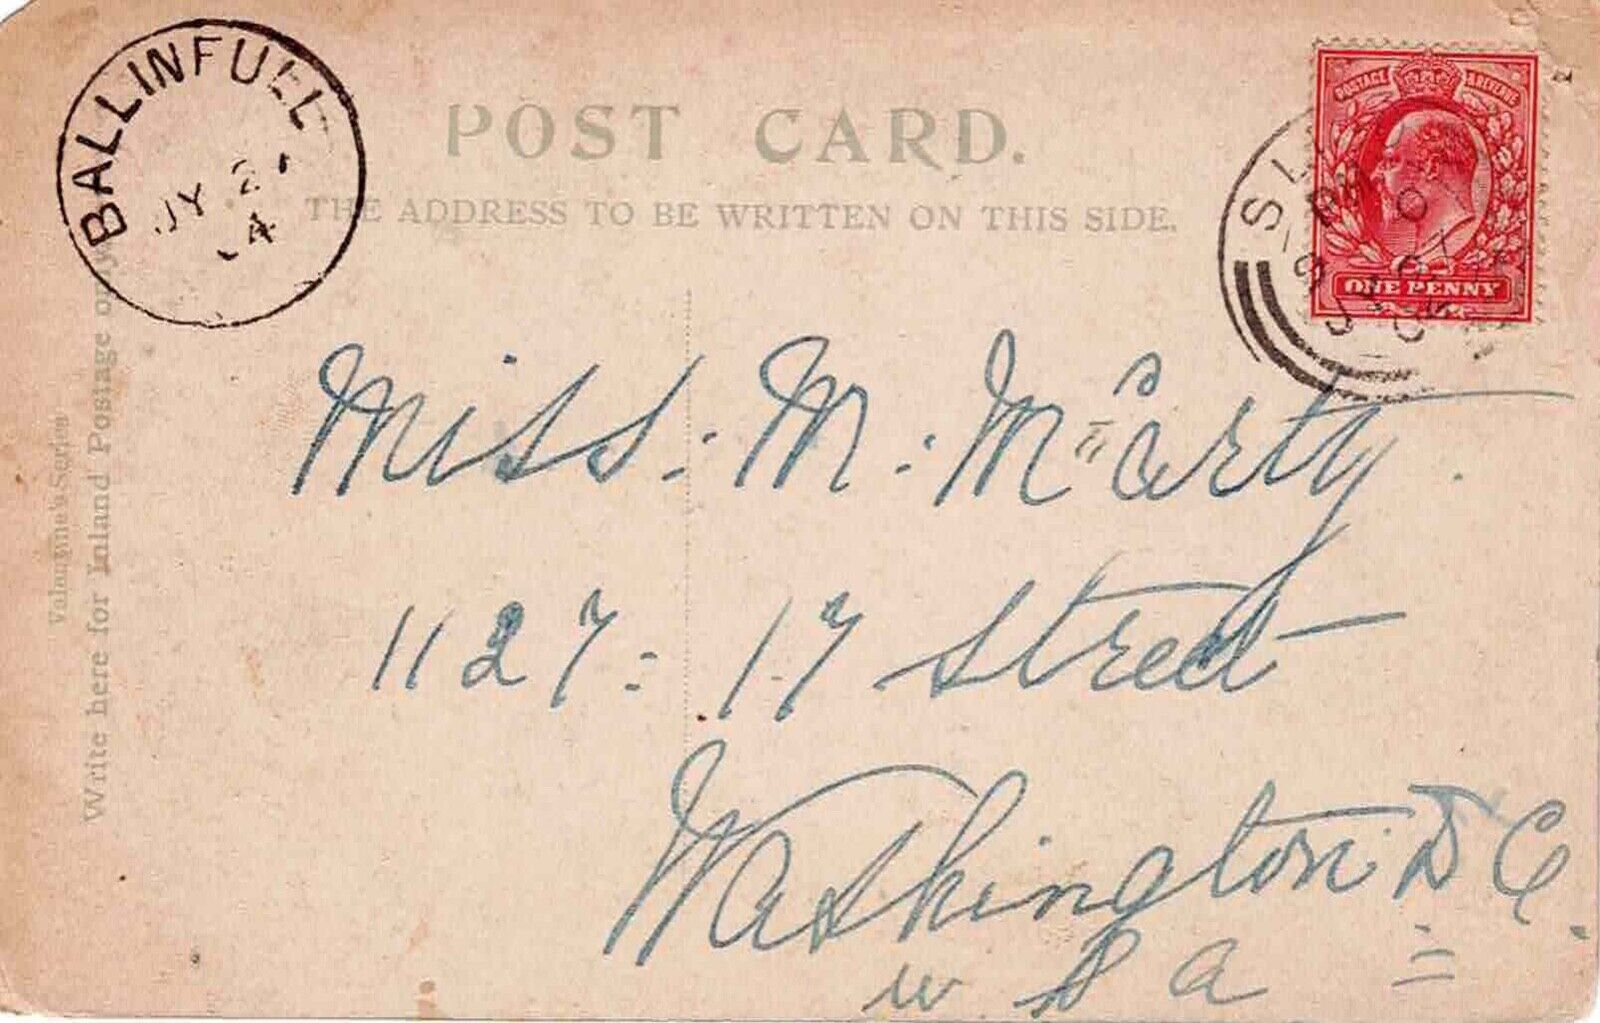 BALLINFULL
JY 2
POST CARD.
THE ADDRESS TO BE WRITTEN ON THIS SIDE.
POSTAGE & REVENUE
ONE PENNY
Valentine's Series
Write here for Inland Postage only
Miss. M. McCarty.
1127 : 17 Street
Washington D C.
U S A